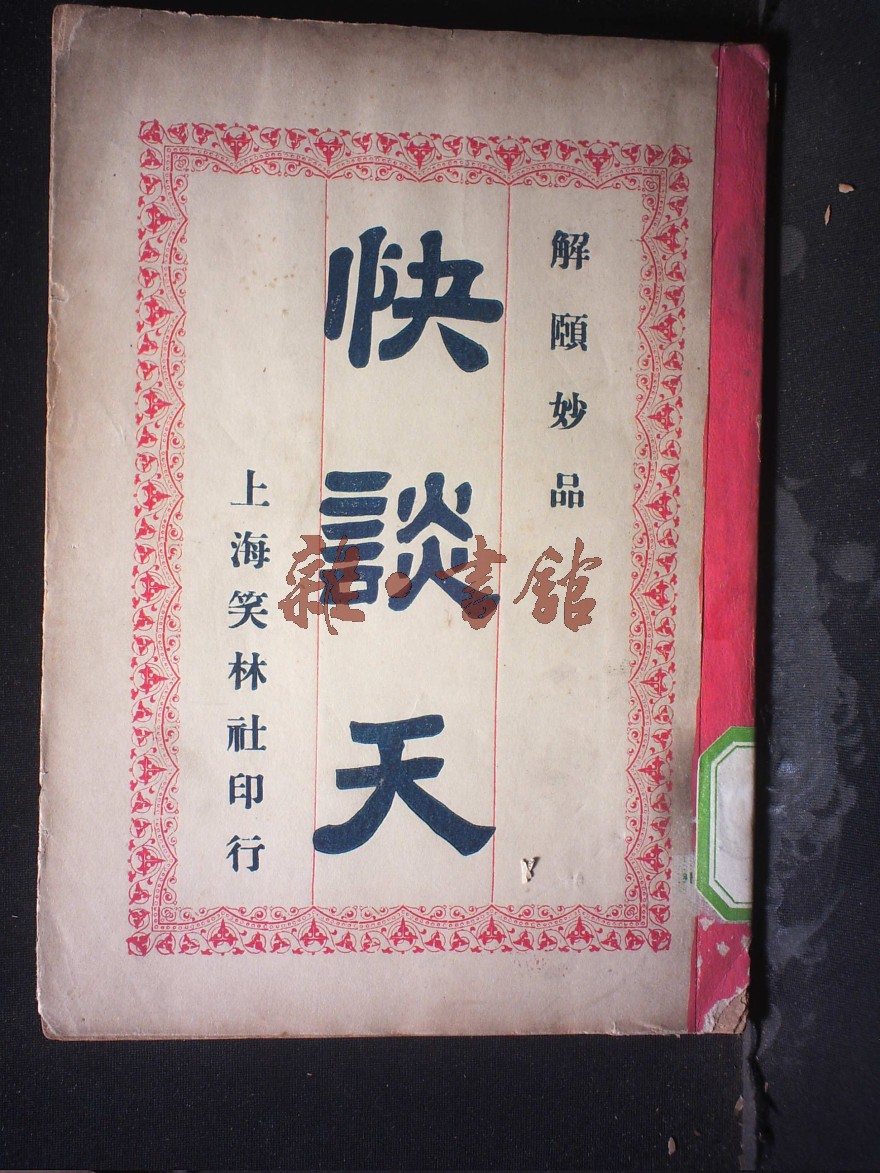 解頤妙品
快談天
上海笑林社印行
雜·書館